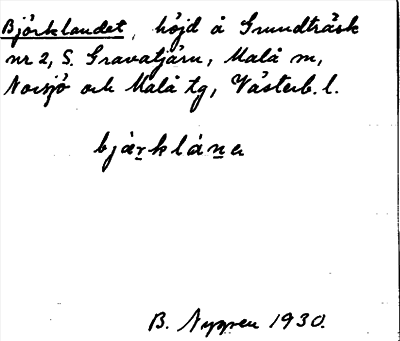 Björklandet, höjd å Grundträsk
nr 2, S. Gravatjärn, Malå sn,
Norsjö och Malå tg, Västerb. l.
bjärklánə
B. Nygren 1930.